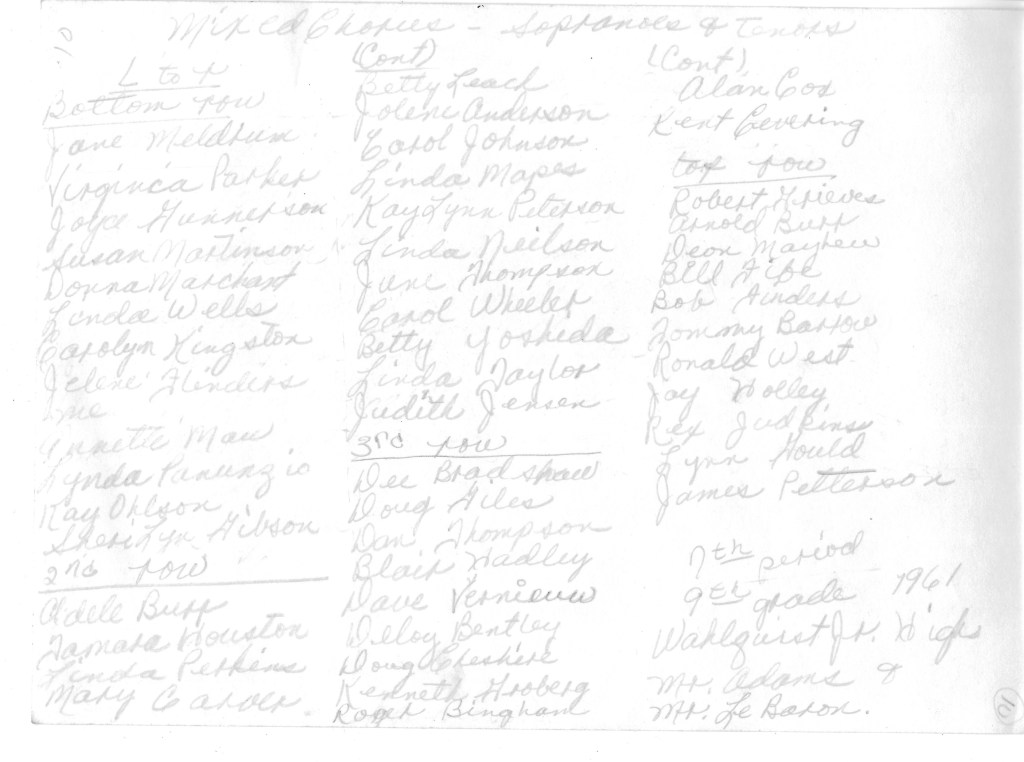 Mixed Chorus - Sopranoes & Tenors
L to r
Bottom row
Jane Meldrum
Virginia Parker
Joyce Gunnerson
Susan Martinson
Donna Marchant
Linda Wells
Carolyn Kingston
Jelene Flinders
me
Annette Maw
Lynda Panunzio
Kay Ohlson
SheriLyn Gibson
2nd row
Adele Burr
Tamara Houston
Linda Perkins
Mary Carver
(Cont)
Betty Leach
Jolene Anderson
Carol Johnson
Linda Mapes
KayLynn Peterson
Linda Neilson
Jane Thompson
Carol Wheeler
Betty Yoshida
Linda Taylor
Judith Jensen
3rd row
Dee Bradshaw
Doug Giles
Dan Thompson
Blair Hadley
Dave Vernieuw
Deloy Bentley
Doug Cheshire
Kenneth Froberg
Roger Bingham
(Cont)
Alan Cox
Kent Gevering
top row
Robert Grieves
Arnold Burr
Deon Mayhew
Bill Fife
Bob Flinders
Tommy Barrow
Ronald West
Jay Holley
Rex Judkins
Lynn Hould
James Petterson
7th period
9th grade 1961
Wahlquist Jr. High
Mr. Adams &
Mr. LeBaron.
10